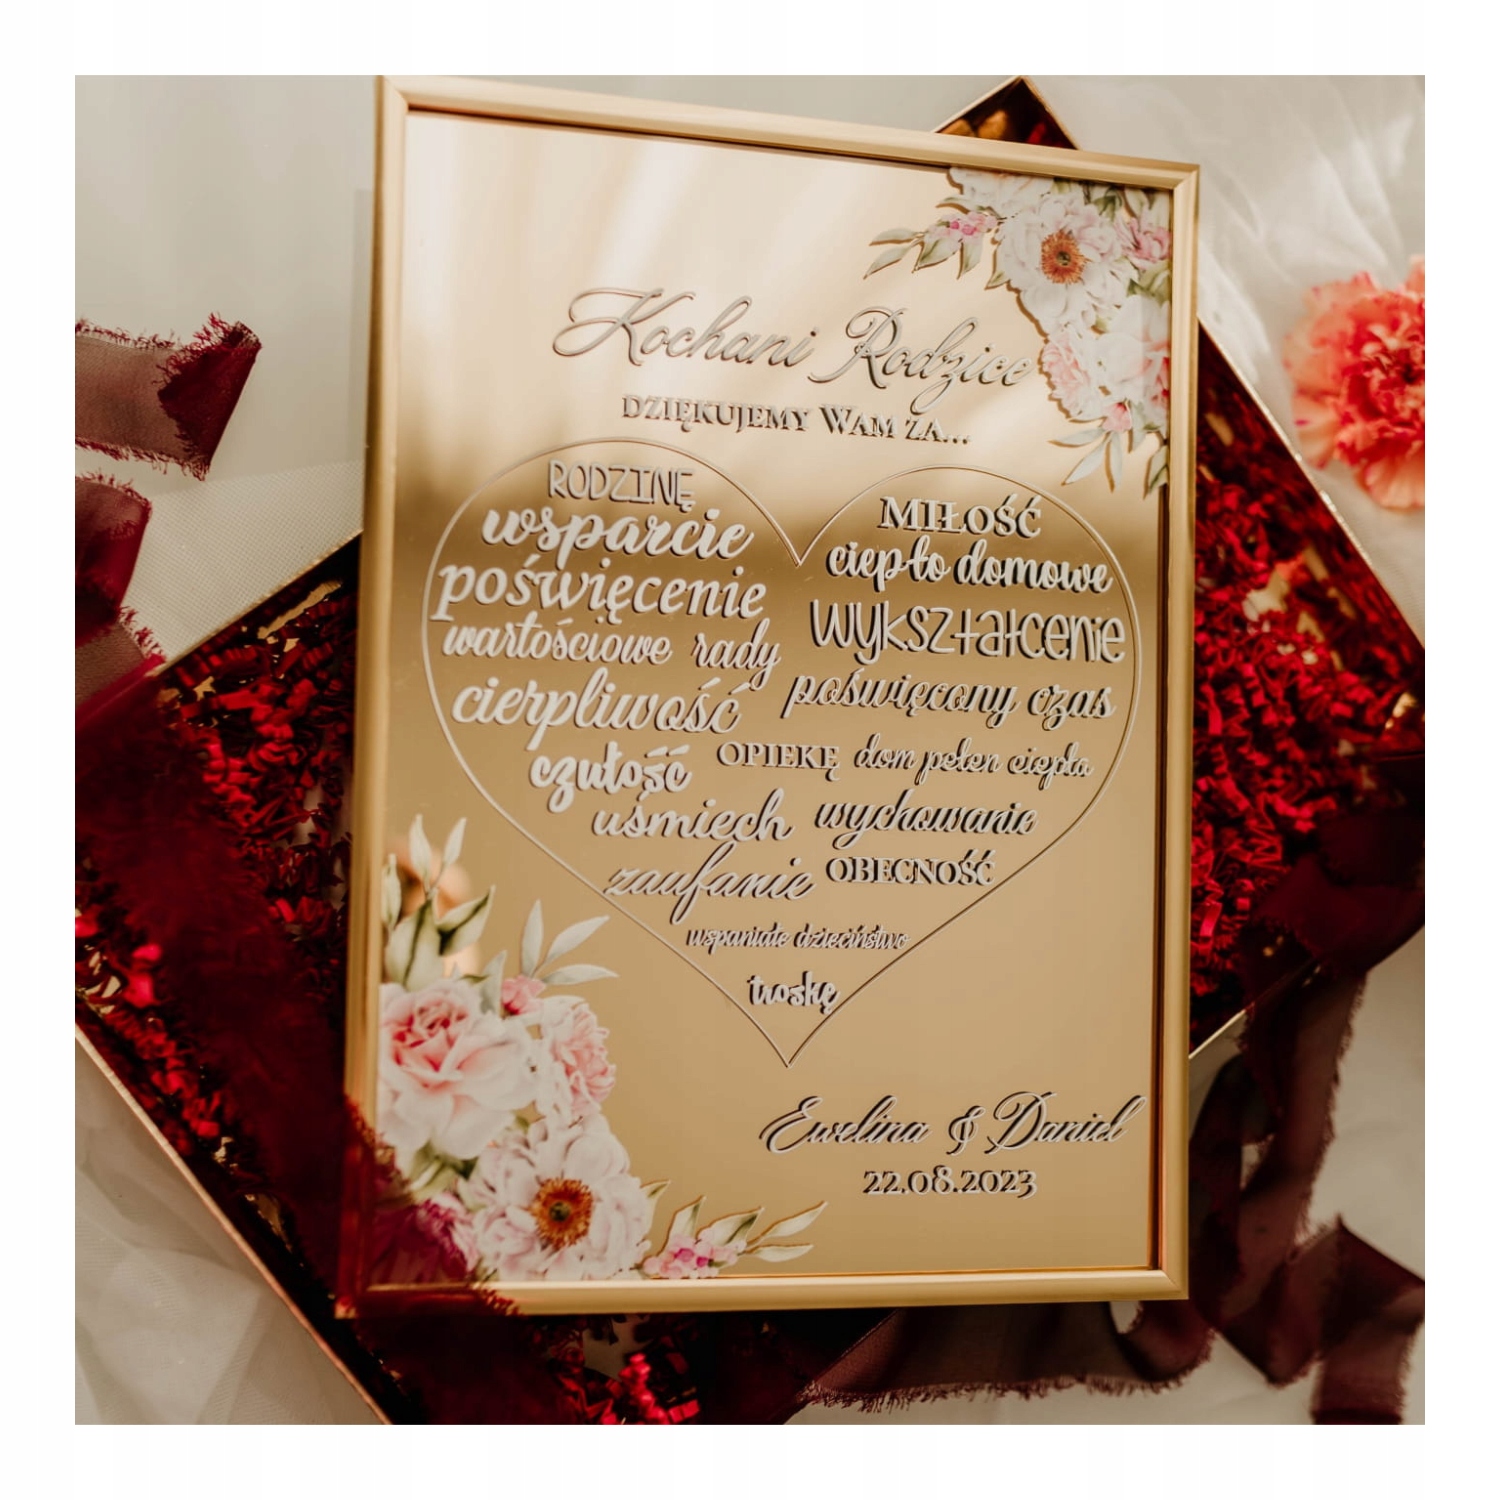 Kochani Rodzice
DZIĘKUJEMY WAM ZA...
RODZINĘ
wsparcie
poświęcenie
wartościowe rady
cierpliwość
czułość
uśmiech
zaufanie
MIŁOŚĆ
ciepło domowe
wykształcenie
poświęcony czas
OPIEKĘ dom pełen ciepła
wychowanie
OBECNOŚĆ
wspaniałe dzieciństwo
troskę
Ewelina & Daniel
22.08.2023